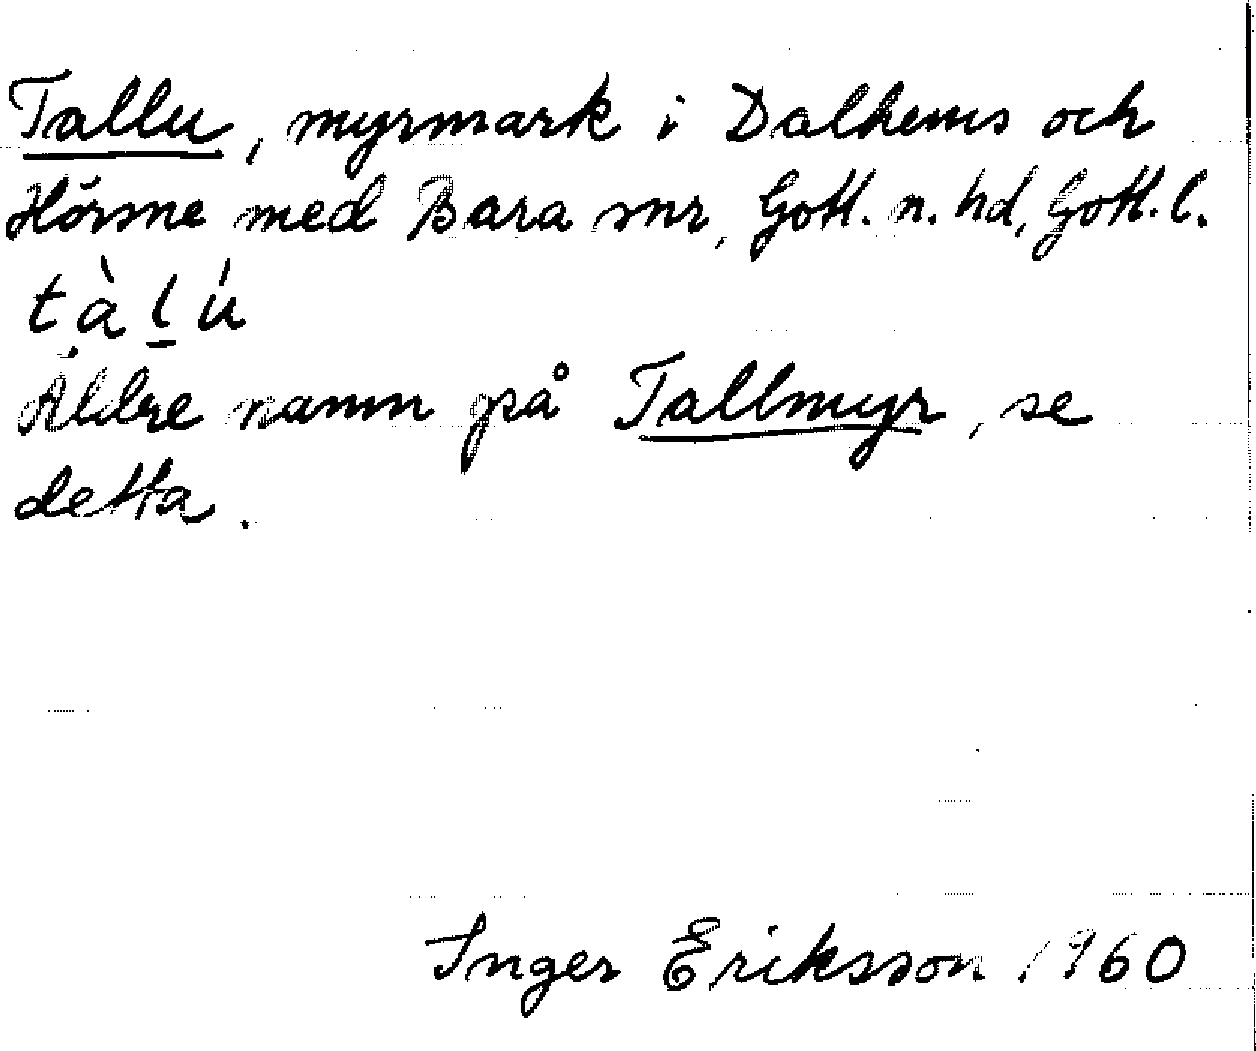 Tallu, myrmark i Dalhems och
Hörsne med Bara snr, Gotl. n. hd, Gotl. l.
tàl̲ú
Äldre namn på Tallmyr, se
detta.
Inger Eriksson 1960